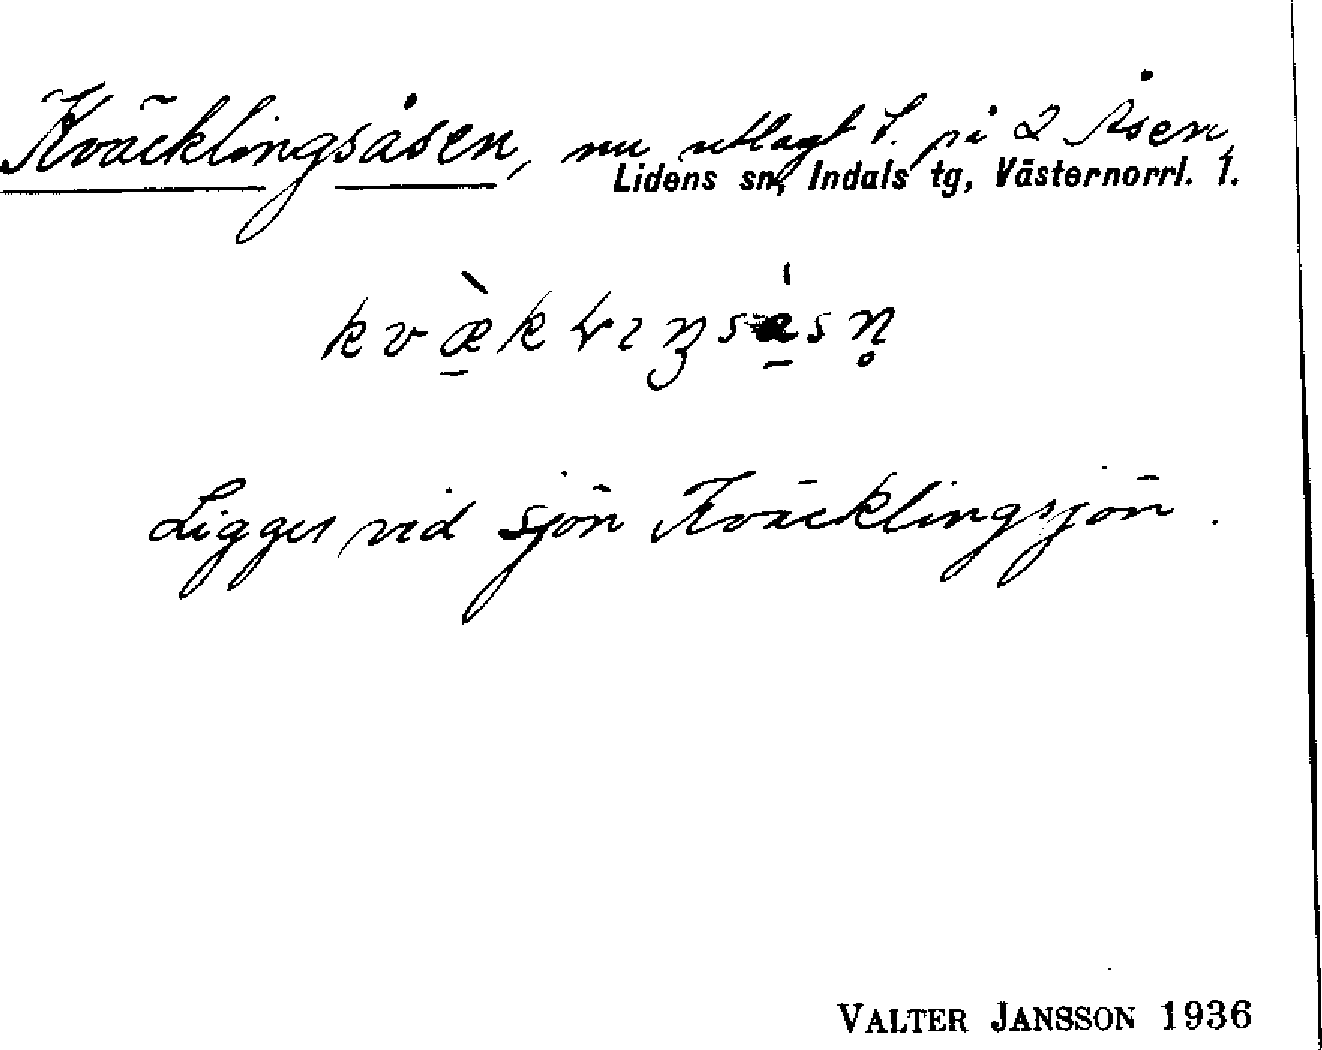 Kväcklingsåsen, nu utlagt t. på 2 Åsen,
Lidens sn, Indals tg, Västernorrl. l.
Ligger vid sjön Kväcklingsjön.
VALTER JANSSON 1936